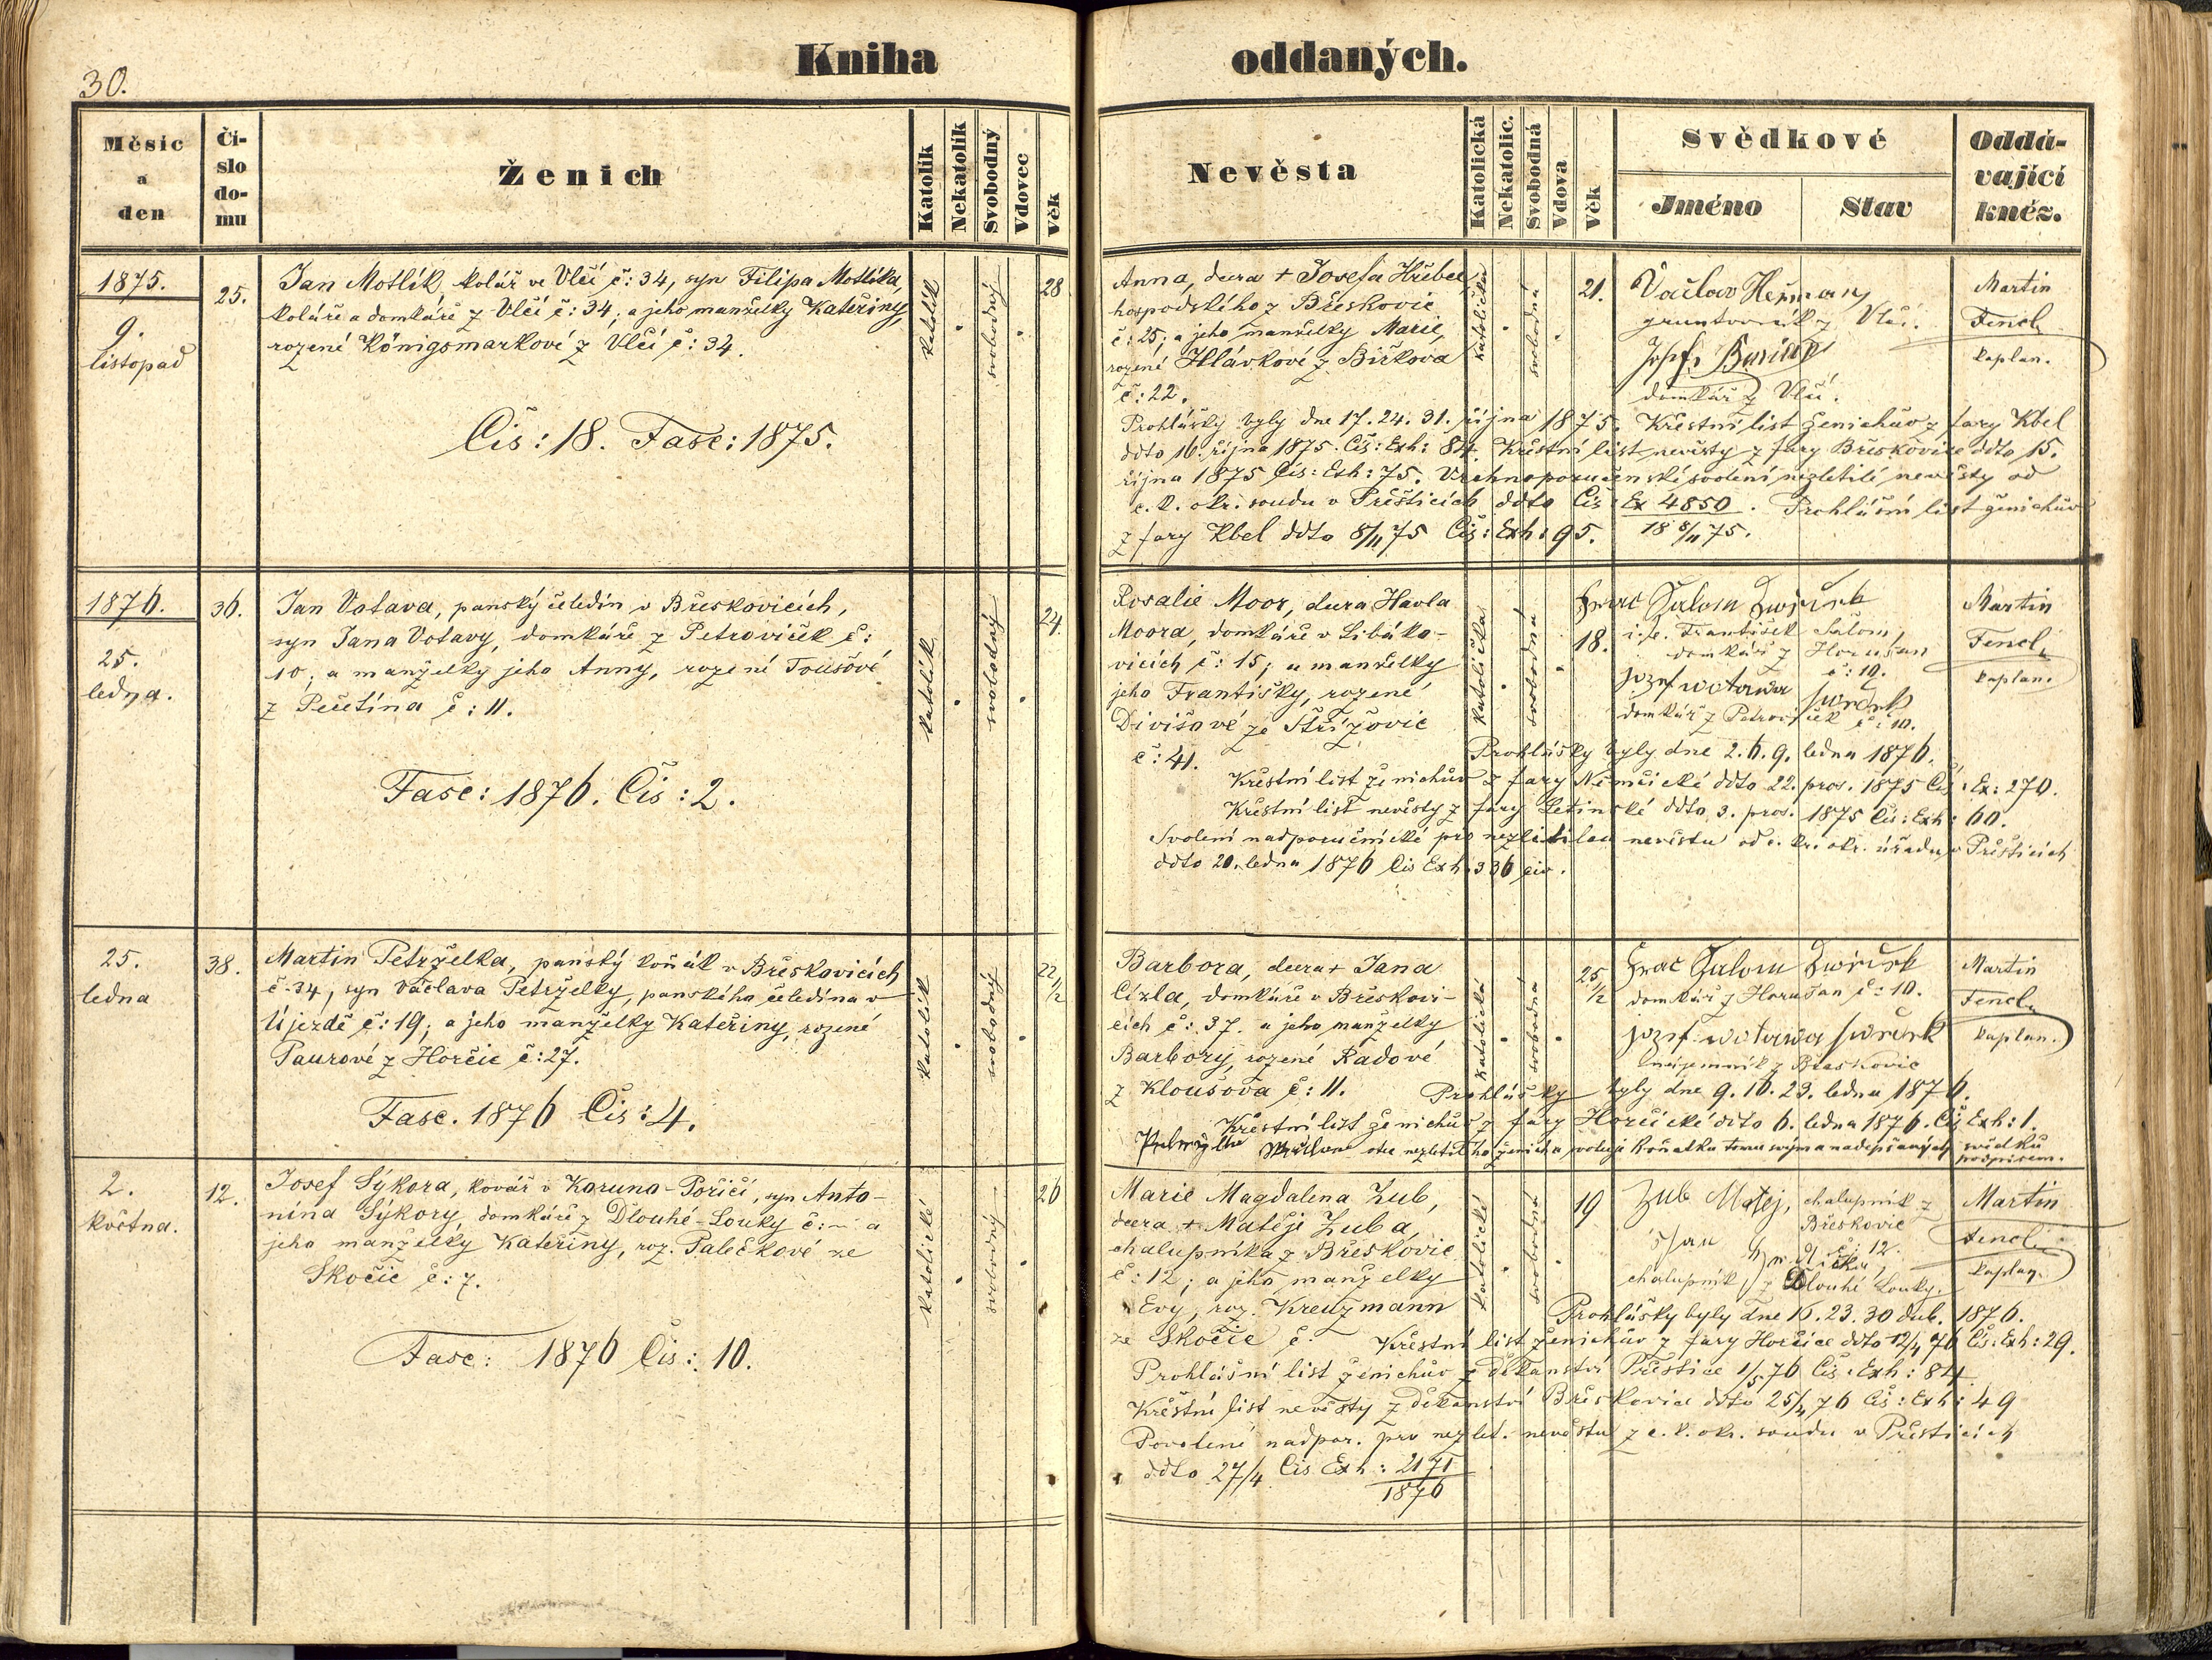 30.
Kniha oddaných.
Měsíc a den
Číslo domu
Ženich
Katolík
Nekatolík
Svobodný
Vdovec
věk
Nevěsta
Katolická
Nekatolic.
Svobodná
Vdova
Věk
Svědkové
Jméno
Stav
Oddávající kněz.
1875.
9.
listopad
25.
Jan Motlík, kolář ve Vlčí č: 34, syn Filipa Motlíka,
koláře a domkáře z Vlčí č: 34; a jeho manželky Kateřiny,
rozené Königsmarkové z Vlčí č: 34.
Čís: 18. Fasc: 1875.
katolík
svobodný
28
Anna, dcera + Josefa Hřebce,
hospodského z Břeskovic
č: 25; a jeho manželky Marie,
rozené Hlávkové z Birkova
č: 22.
katolička
svobodná
21.
Václav Heřman,
gruntovník z Vlčí.
Josef
domkář z Vlčí.
Martin
Fencl,
kaplan.
Prohlášky byly dne 17. 24. 31. října 1875. Křestní list ženichův z fary Kbel
ddto 16. října 1875. Čís: Exh: 84. Křestní list nevěsty z fary Břeskovice ddto 15.
října 1875 Čís: Exh: 75. Vrchnoporučenské svolení nezletilé nevěsty od
c. k. okr. soudu v Přešticích ddto Čís Ex 4850. Prohlášní list ženichův
z fary Kbel ddto 8/11 75 Čís: Exh: 95. 18 8/11 75.
1876.
25.
ledna.
36.
Jan Votava, panský čeledín v Břeskovicích,
syn Jana Votavy, domkáře z Petroviček č:
10; a manželky jeho Anny, rozené Toušové
z Pečetína č: 11.
Fasc: 1876. Čís: 2.
katolík
svobodný
24.
Rosalie Moor, dcera Havla
Moora, domkáře v Libáko-
vicích č: 15; a manželky
jeho Františky, rozené
Divišové ze Střížovic
č: 41.
katolička
svobodná
18.
Franc Salom
i. e. František Salom,
domkář z Horušan
č: 10.
jozef wotawa swědek
domkář z Petroviček č: 10.
Martin
Fencl,
kaplan.
Prohlášky byly dne 2. 6. 9. ledna 1876.
Křestní list ženichův z fary Němčické ddto 22. pros. 1875 Čís: Ex: 270.
Křestní list nevěsty z fary Letinské ddto 3. pros. 1875 Čís: Exh: 60.
Svolení nadporučnické pro nezletilou nevěstu od c. k. okr. úřadu v Přešticích
ddto 20. ledna 1876 Čís Exh 336 civ.
25.
ledna
38.
Martin Petrželka, panský koňák v Břeskovicích
č. 34, syn Václava Petrželky, panského čeledína v
Újezdě č: 19; a jeho manželky Kateřiny, rozené
Paurové z Horčic č: 27.
Fasc. 1876 Čís: 4.
katolík
svobodný
22 1/2
Barbora, dcera + Jana
Cízla, domkáře v Břeskovi-
cích č: 37. a jeho manželky
Barbory, rozené Radové
z Kloušova č: 11.
katolická
svobodná
25 1/2
Franc Salom
domkář z Horušan č: 10.
jozef wotawa swědek
nájemník z Břeskovic
Martin
Fencl,
kaplan.
Prohlášky byly dne 9. 16. 23. ledna 1876.
Křestní list ženichův z fary Horčické ddto 6. ledna 1876. Čís Exh: 1.
otec nezletilého ženicha svoluje k sňatku tomu svým a nadepsaných svědků
podpisem.
2.
května.
12.
Josef Sýkora, kovář v Koruno-Poříčí, syn Anto-
nína Sýkory, domkáře z Dlouhé-Louky č: a
jeho manželky Kateřiny, roz. Palečkové ze
Skočic č: 7.
Fasc: 1876 Čís: 10.
katolické
svobodný
26
Marie Magdalena Zub,
dcera + Matěje Zuba,
chalupníka z Břeskovic
č: 12; a jeho manželky
Evy, roz. Kreuzmann
ze Skočic č.
katolické
svobodná
19
Zub Matej, chalupník z
Břeskovic
č: 12.
chalupník z Dlouhé Louky.
Martin
Fencl,
kaplan.
Prohlášky byly dne 16. 23. 30 dub. 1876.
Křestní list ženichův z fary Horčice ddto 12/4 76 Čís: Exh: 29.
Prohlášní list ženichův z děkanství Přeštice 1/5 76 Čís: Exh: 84
Křestní list nevěsty z děkanství Břeskovice ddto 25/4 76 Čís: Exh: 49
Povolení nadpor. pro nezlet. nevěstu z c. k. okr. soudu v Přešticích
ddto 27/4 Čís Exh: 2171
1876